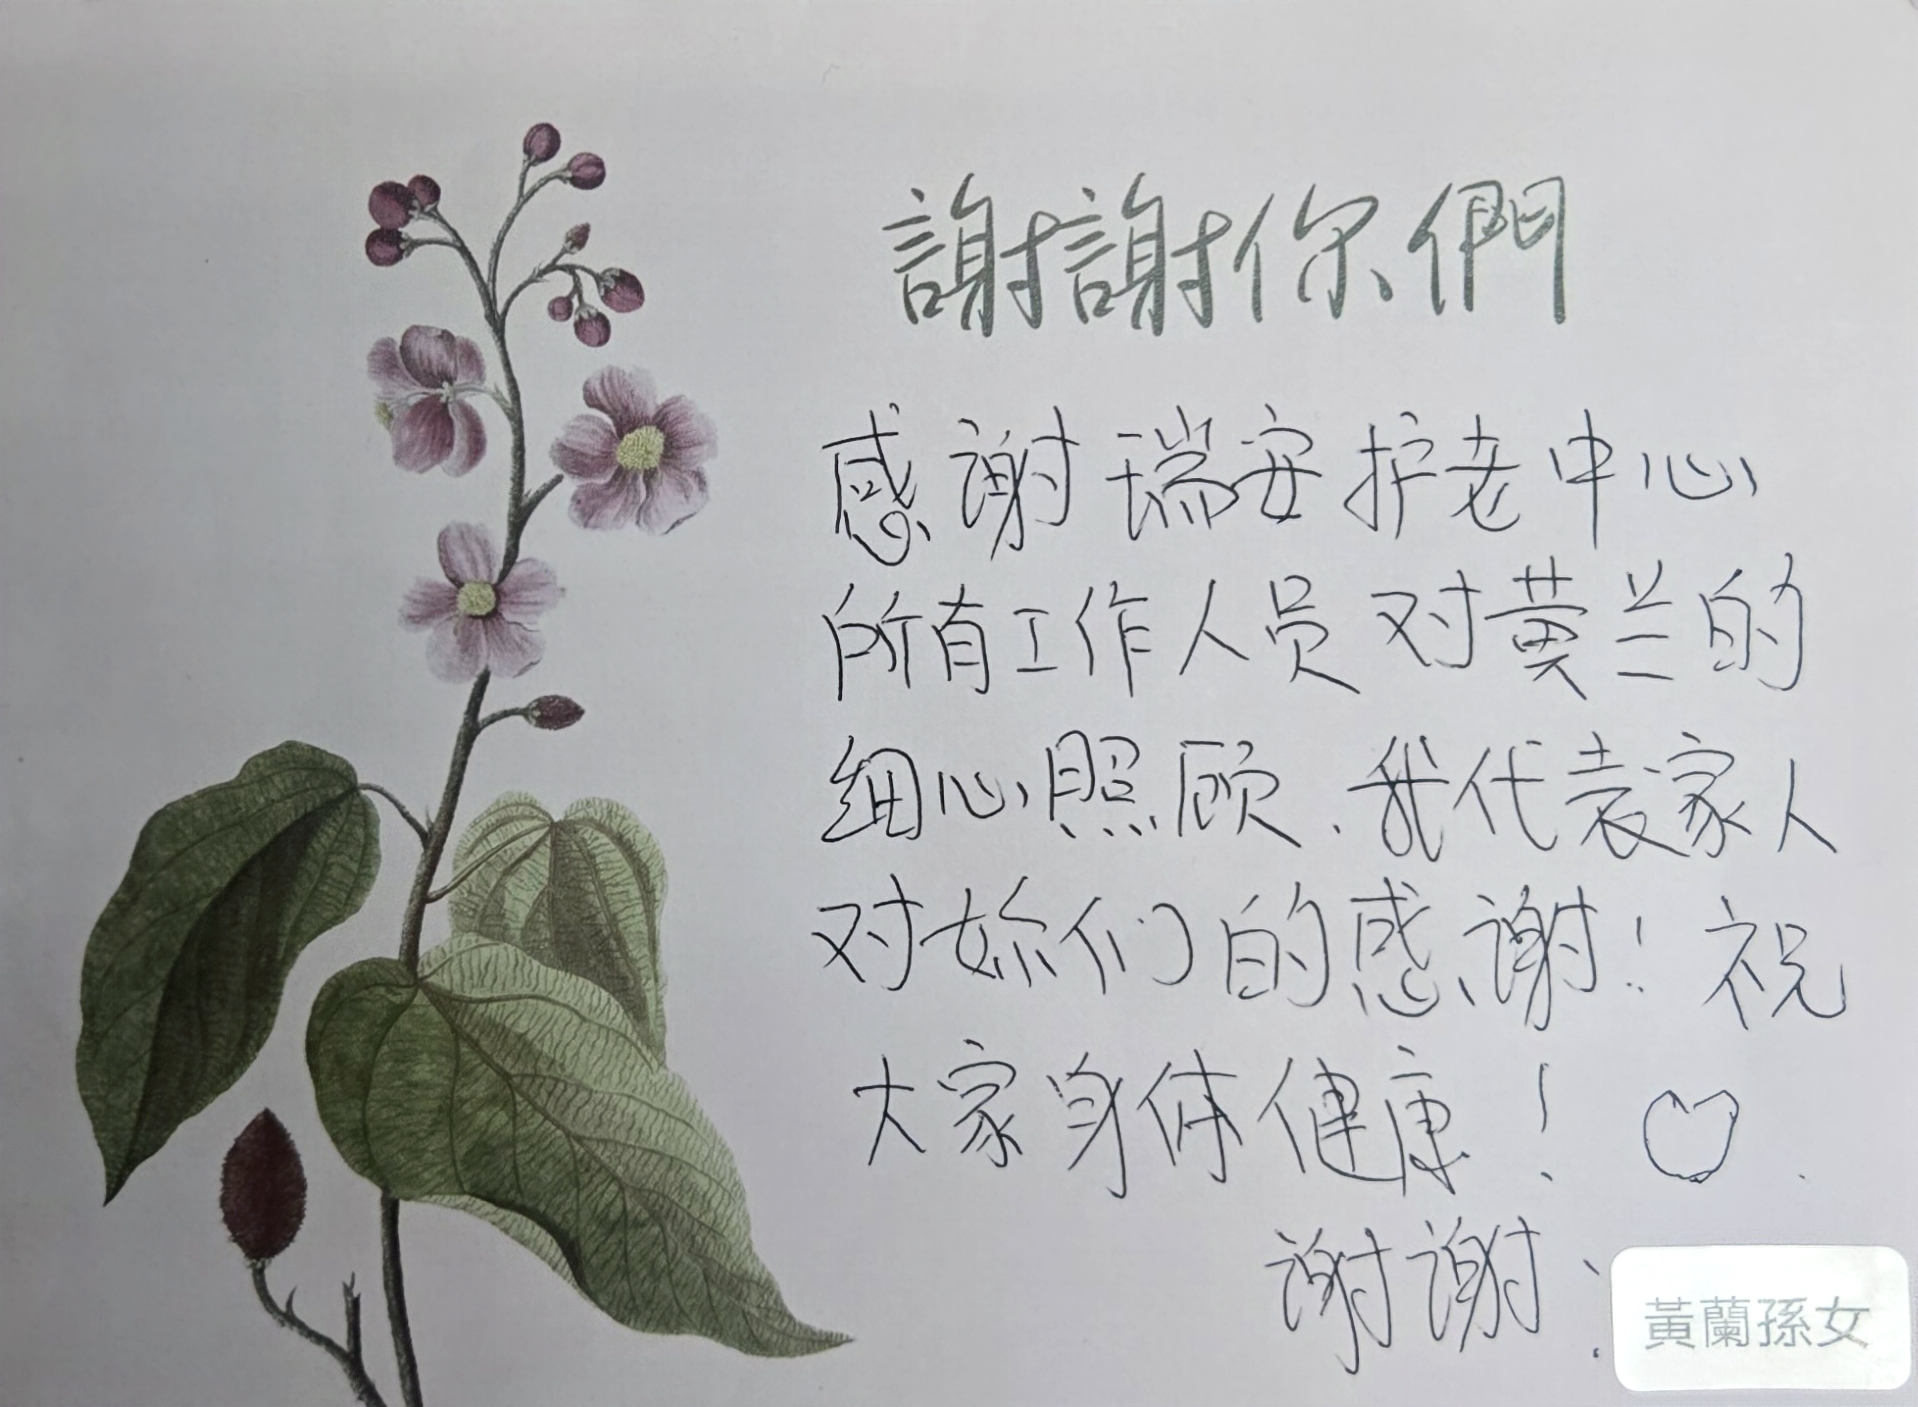 謝謝你們
感谢瑞安护老中心
所有工作人员对黄兰的
细心照顾.我代表家人
对妳们的感谢!祝
大家身体健康!
谢谢:
黃蘭孫女